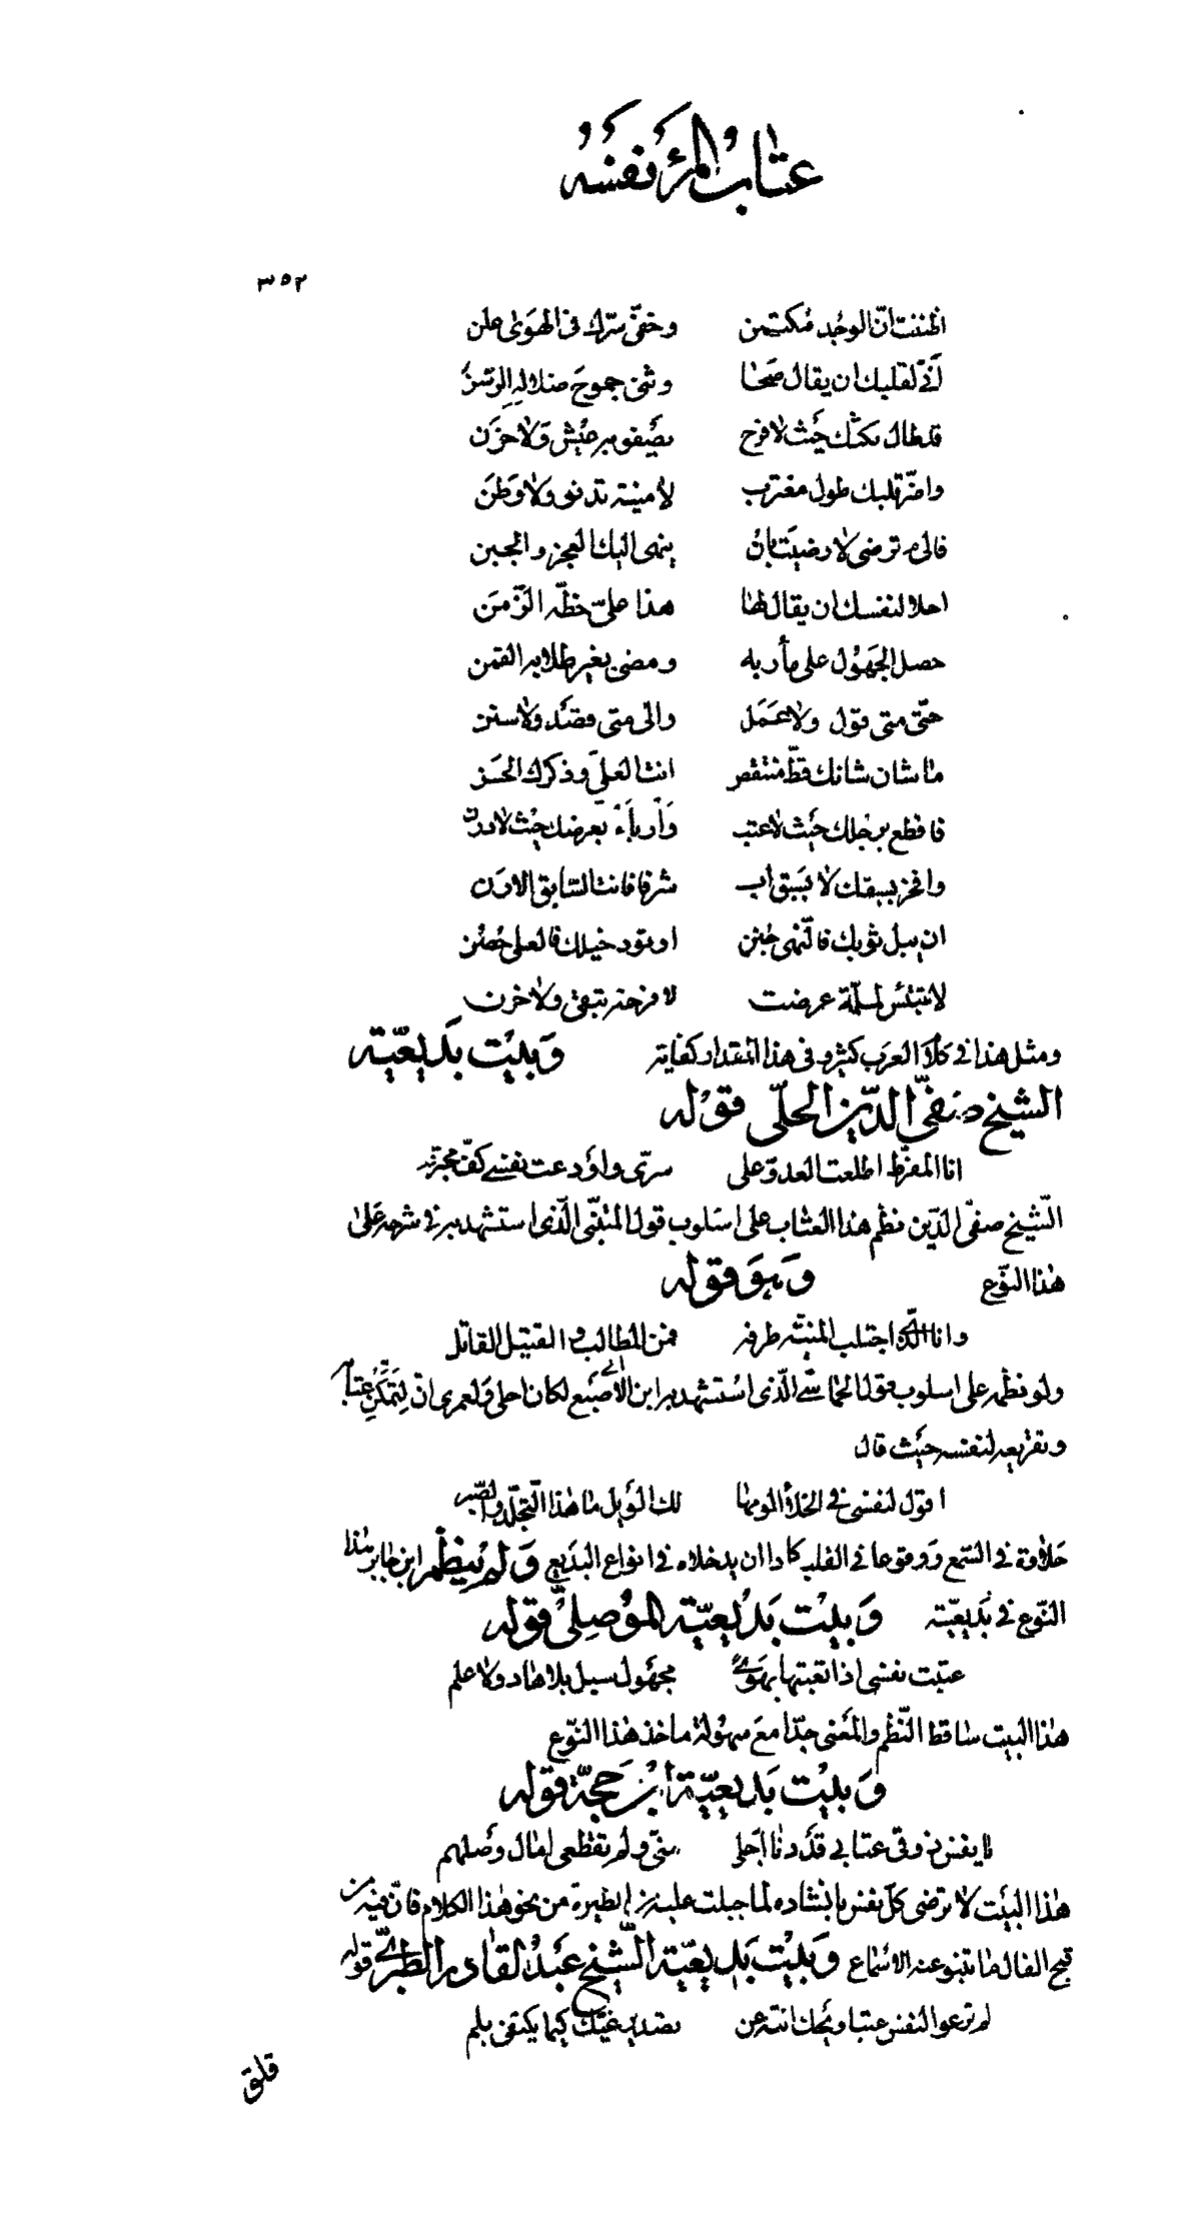 عتاب المرء نفسه
٣٥٢
اظننت انّ الوجد مكتمن وخفيّ سرّك في الهوى علن
آن لقلبك ان يقال صحا وثنى جموح ضلاله الرسن
قد طال مكثك حيث لا فرح يصفو به عيش ولا حزن
واضرّ قلبك طول مغترب لا منية تدنو ولا وطن
فالى م ترضى لا رضيت بان ينمى اليك العجز والجبن
اهلا لنفسك ان يقال لها هذا علىّ حظّه الزّمن
حصل الجهول على مأربه ومضى بغير طلابه القمن
حتّى متى قول ولا عمل والى متى قصد ولا سنن
ما شان شانك قطّ منتقص انت العليّ وذكرك الحسن
فاقطع برحلك حيث لا عتب وأربأ بعرضك حيث لا درن
وافخر بسبقك لا بسبق اب شرفا فانت السّابق الارن
ان يبل ثوبك فالنّهى جنن او تود خيلك فالعلى حصن
لا تبتئس لملمّة عرضت لا فرحة تبقى ولا حزن
ومثل هذا في كلام العرب كثير وفى هذا المقدار كفاية وبيت بديعيّة
الشيخ صفيّ الدّين الحلّي قوله
انا المفرّط اطلعت العدوّ على سرّى واودعت نفسي كفّ مجترم
الشّيخ صفيّ الدّين نظم هذا العتاب على اسلوب قول المتنبّي الّذى استشهد به في شرحه على
هذا النّوع وهو قوله
وانا الذي اجتلب المنيّة طرفه فمن المطالب والقتيل القاتل
ولو نظمه على اسلوب قول الحماسّي الّذى استشهد به ابن ابي الاصبع لكان احلى ولعمرى انّ لتمكّن عتابه
وتقريعه لنفسه حيث قال
اقول لنفسى في الخلاء الومها لك الويل ما هذا التّجلّد والصّبر
حلاوة في السّمع ووقوعا في القلب كادا ان يدخلاه في انواع البديع ولم ينظم ابن جابر هذا
النّوع في بديعيّته وبيت بديعيّة الموصليّ قوله
عتبت نفسى اذ اتعبتها بهوى مجهول سبل بلا هاد ولا علم
هذا البيت ساقط النّظم والمعنى جدّا مع سهولة ماخذ هذا النّوع
وبيت بديعيّة ابن حجّة قوله
يا نفس ذوقى عتابي قد دنا اجلى منّي ولم تقطعى امال وصلهم
هذا البيت لا ترضى كلّ نفس بانشاده لما جبلت عليه من الطيرة من نحو هذا الكلام فانّ فيه من
قبح الفال ما تنبو عنه الاسماع وبيت بديعيّة الشّيخ عبد القادر الطّبريّ قوله
لم ترعو النفس عتبا ويحك انته عن غيّك كيما يكتفى بلم
قلق